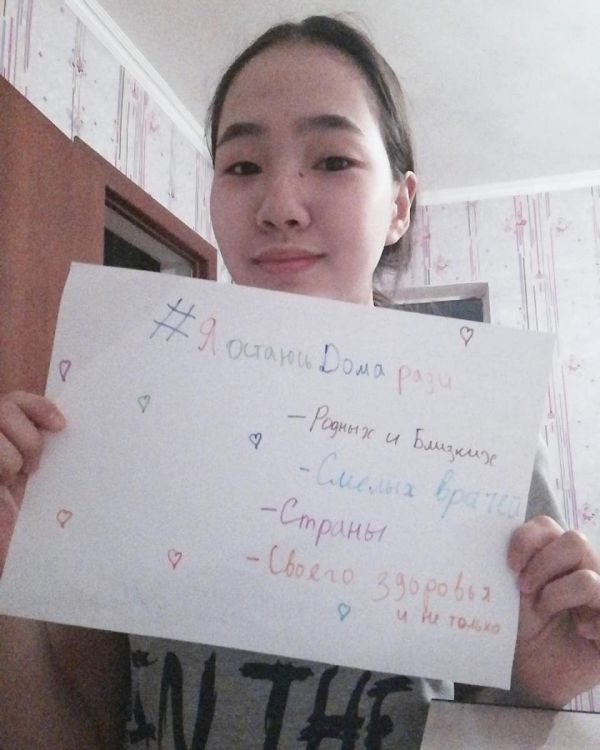 #Я остаюсь Дома ради
- Родных и Близких
- Смелых врачей
- Страны
- Своего здоровья
и не только
IN THE